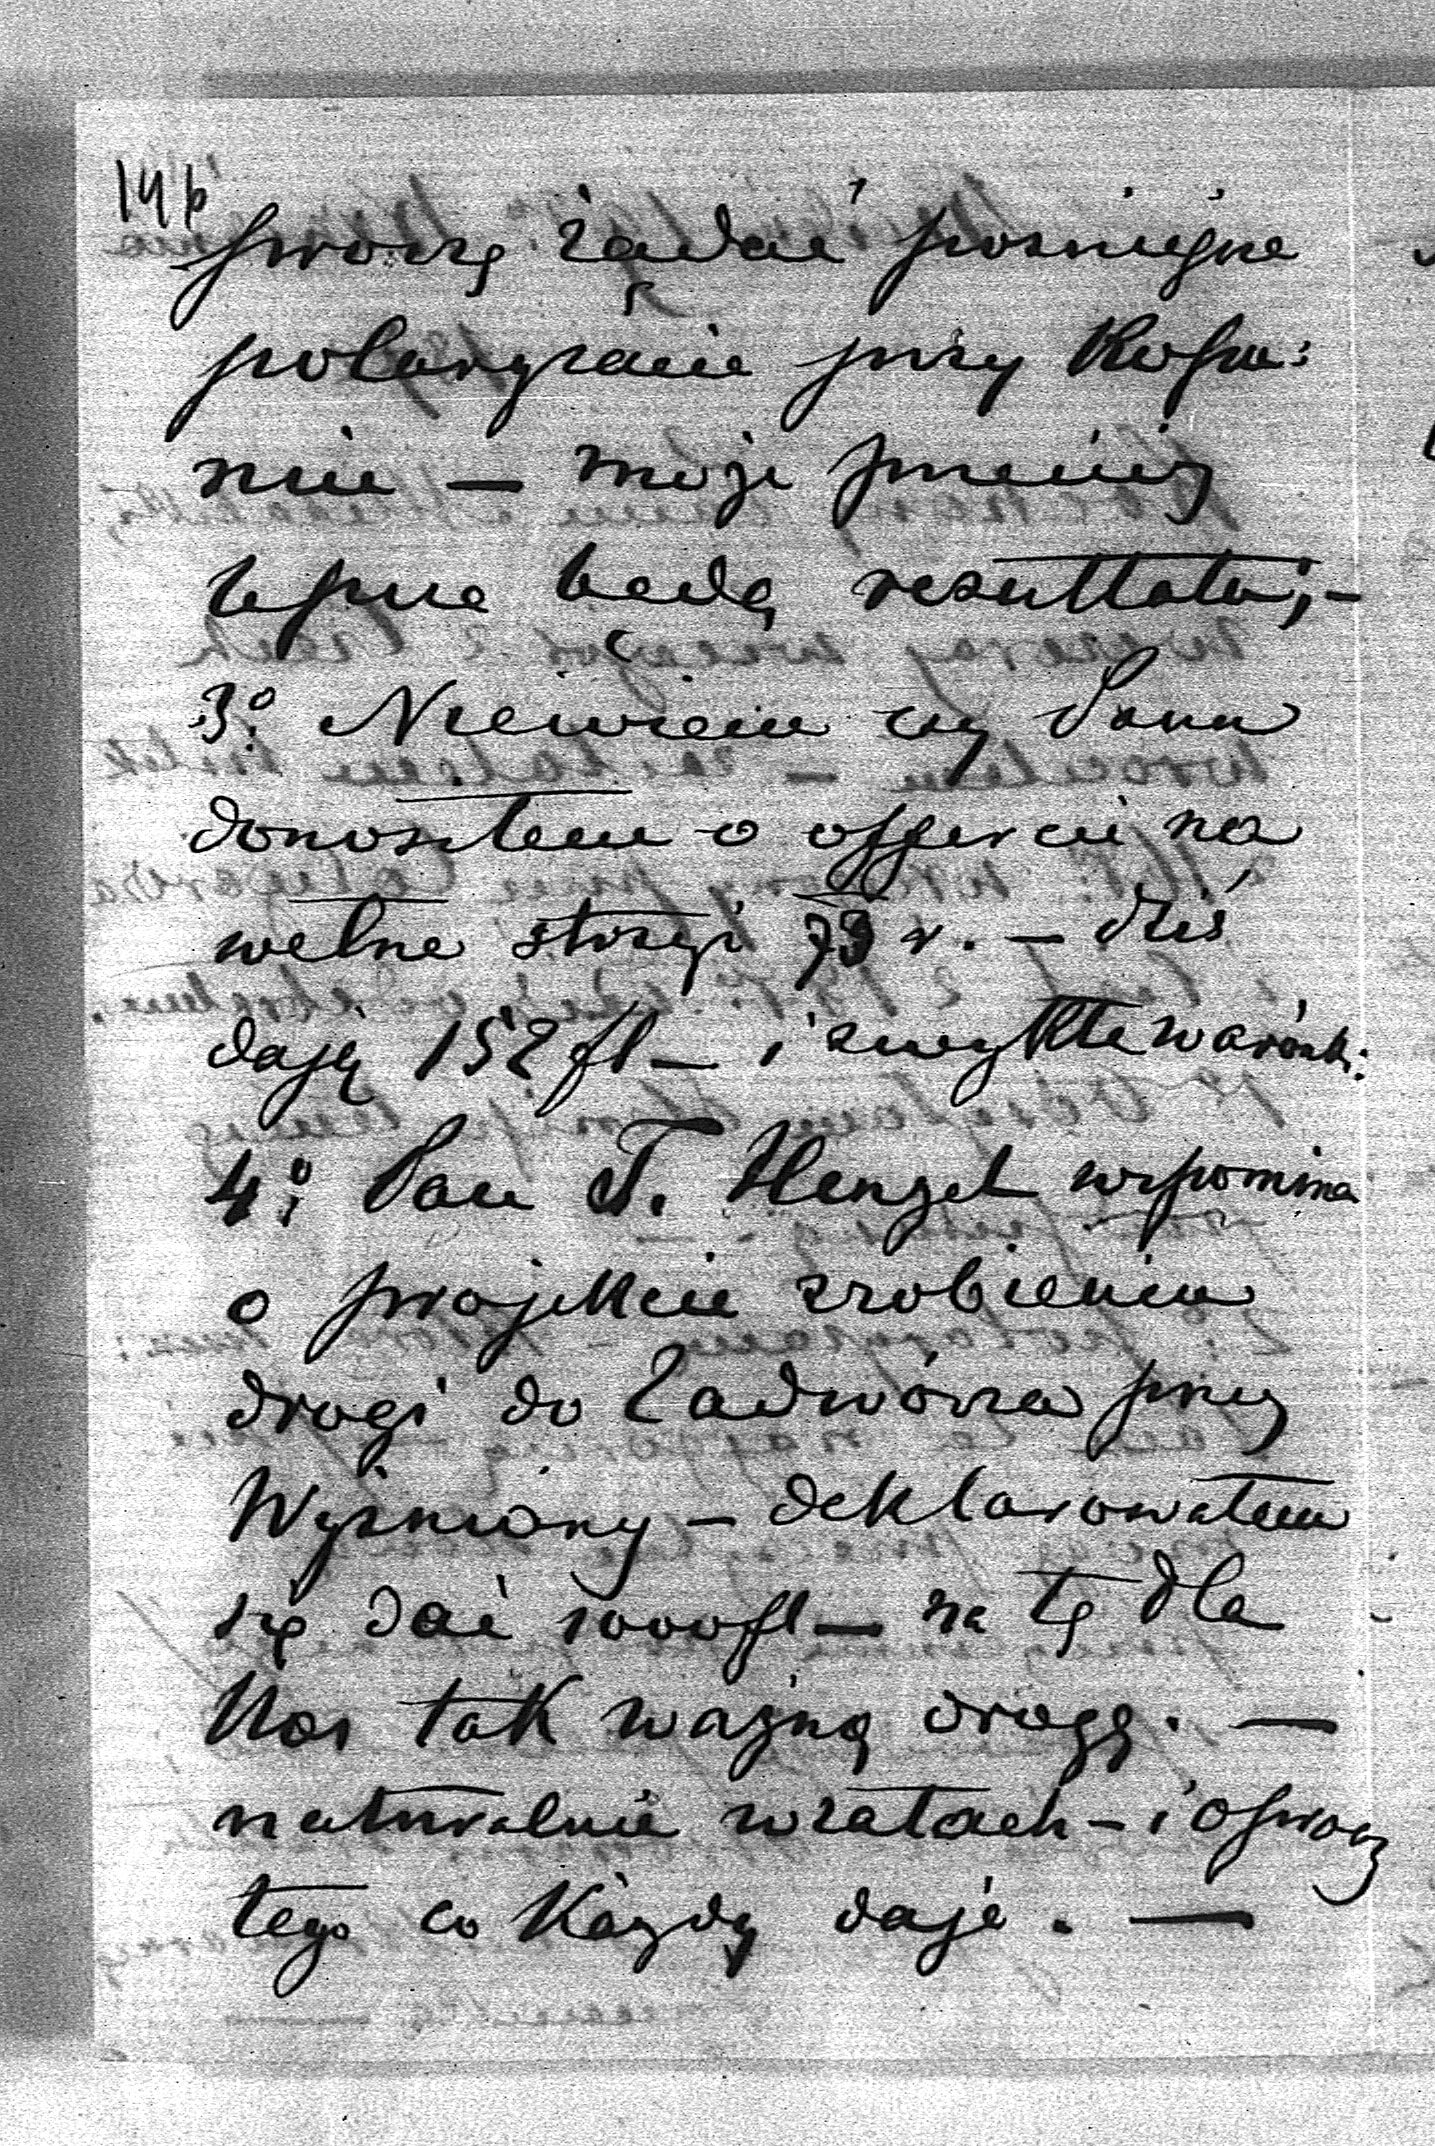 146
proszę żądać pośpieszne
polaryzacie przy Kopa:
niu — może później
lepsze będą rezultata; –
3º Niewiem czy Panu
donosiłem o offercie na
wełnę strzyż 79 r. — dziś
dają 152 fl — i zwykłe warónk:
4º; Pan T. Henzel wspomina
o projekcie zrobienia
drogi do Zadwórza przez
Wyżniany – deklarowałem
się dać 1000 fl — na tę dla
Nas tak ważną drogę. —
naturalnie wratach – i oprócz
tego co Każdy daje. —